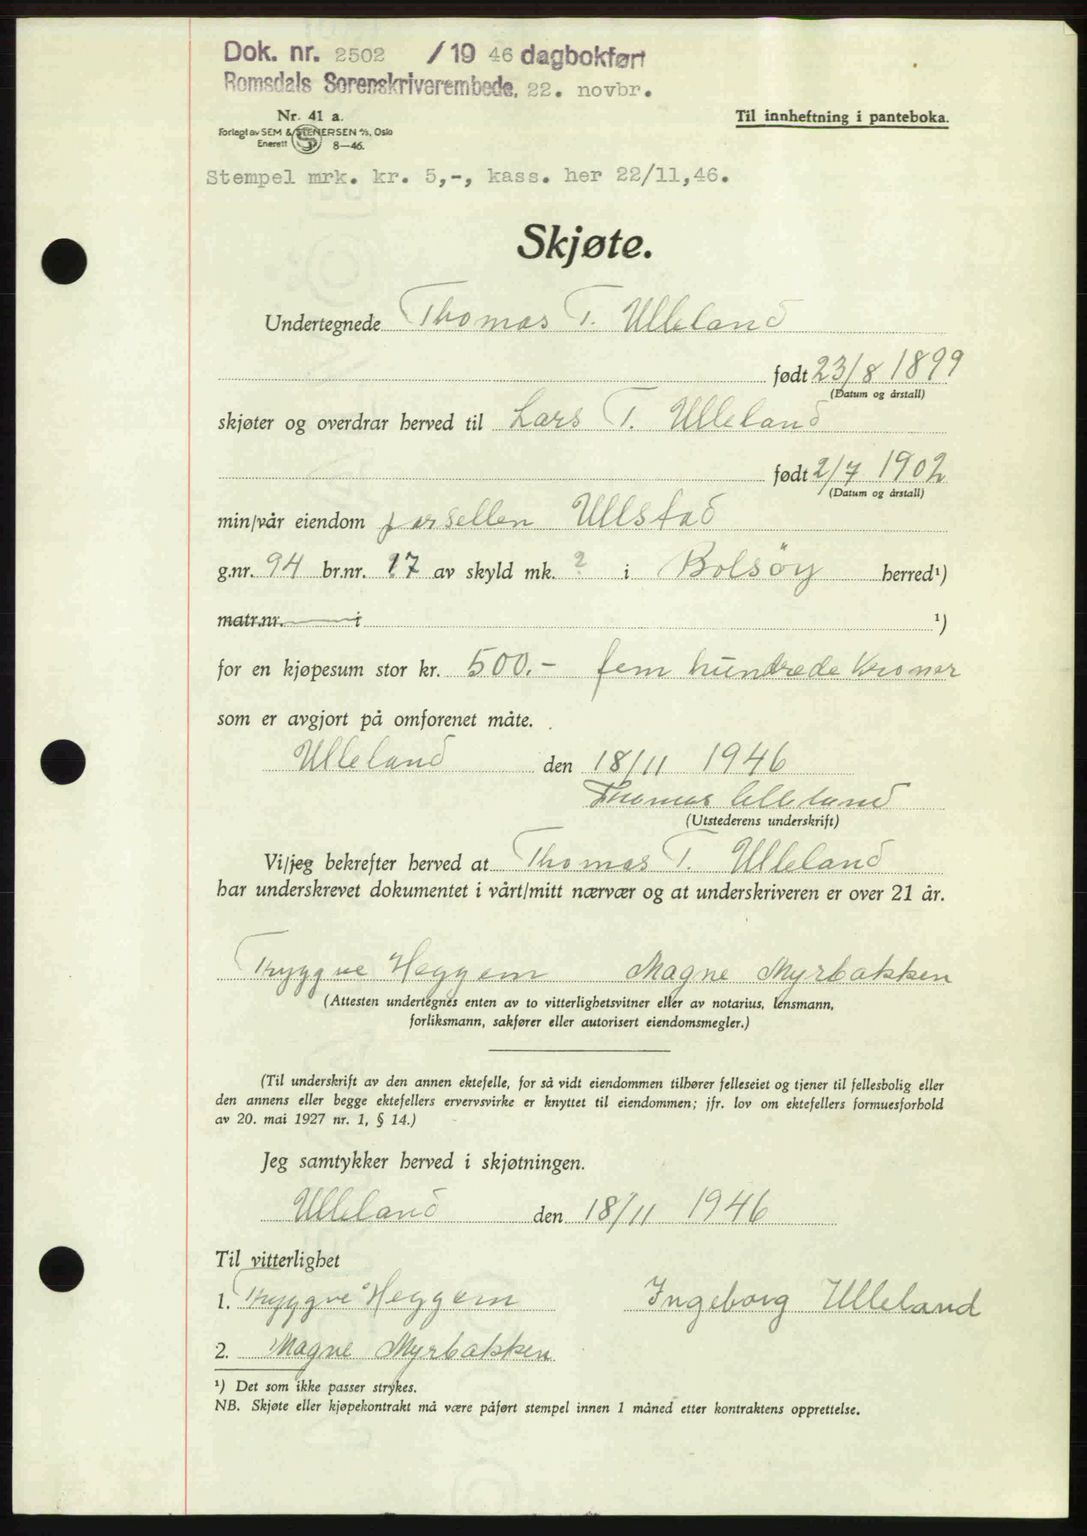 Dok. nr. 2502 /1946 dagbokført
Romsdals Sorenskriverembede, 22. novbr.
Nr. 41 a.
Til innheftning i panteboka.
Forlagt av SEM & STENERSEN A/S, Oslo
Enerett 8—46.
Stempel mrk. kr. 5,-, kass. her 22/11,46.
Skjøte.
Undertegnede Thomas T. Ulleland
født 23/8 1899
(Datum og årstall)
skjøter og overdrar herved til Lars T. Ulleland
født 2/7 1902
(Datum og årstall)
min/vår eiendom parsellen Ullstad
g.nr. 94 br.nr. 17 av skyld mk. ? i Bolsöy herred¹)
matr.nr. i ¹)
for en kjøpesum stor kr. 500.- fem hundrede kroner
som er avgjort på omforenet måte.
Ulleland den 18/11 1946
Thomas Ulleland
(Utstederens underskrift)
Vi/jeg bekrefter herved at Thomas T. Ulleland
har underskrevet dokumentet i vårt/mitt nærvær og at underskriveren er over 21 år.
Tryggve Heggem Magne Myrbakken
(Attesten undertegnes enten av to vitterlighetsvitner eller av notarius, lensmann,
forliksmann, sakfører eller autorisert eiendomsmegler.)
(Til underskrift av den annen ektefelle, for så vidt eiendommen tilhører felleseiet og tjener til fellesbolig eller
den annens eller begge ektefellers ervervsvirke er knyttet til eiendommen; jfr. lov om ektefellers formuesforhold
av 20. mai 1927 nr. 1, § 14.)
Jeg samtykker herved i skjøtningen.
Ulleland den 18/11 1946
Til vitterlighet
1. Tryggve Heggem Ingeborg Ulleland
2. Magne Myrbakken
¹) Det som ikke passer strykes.
NB. Skjøte eller kjøpekontrakt må være påført stempel innen 1 måned etter kontraktens opprettelse.